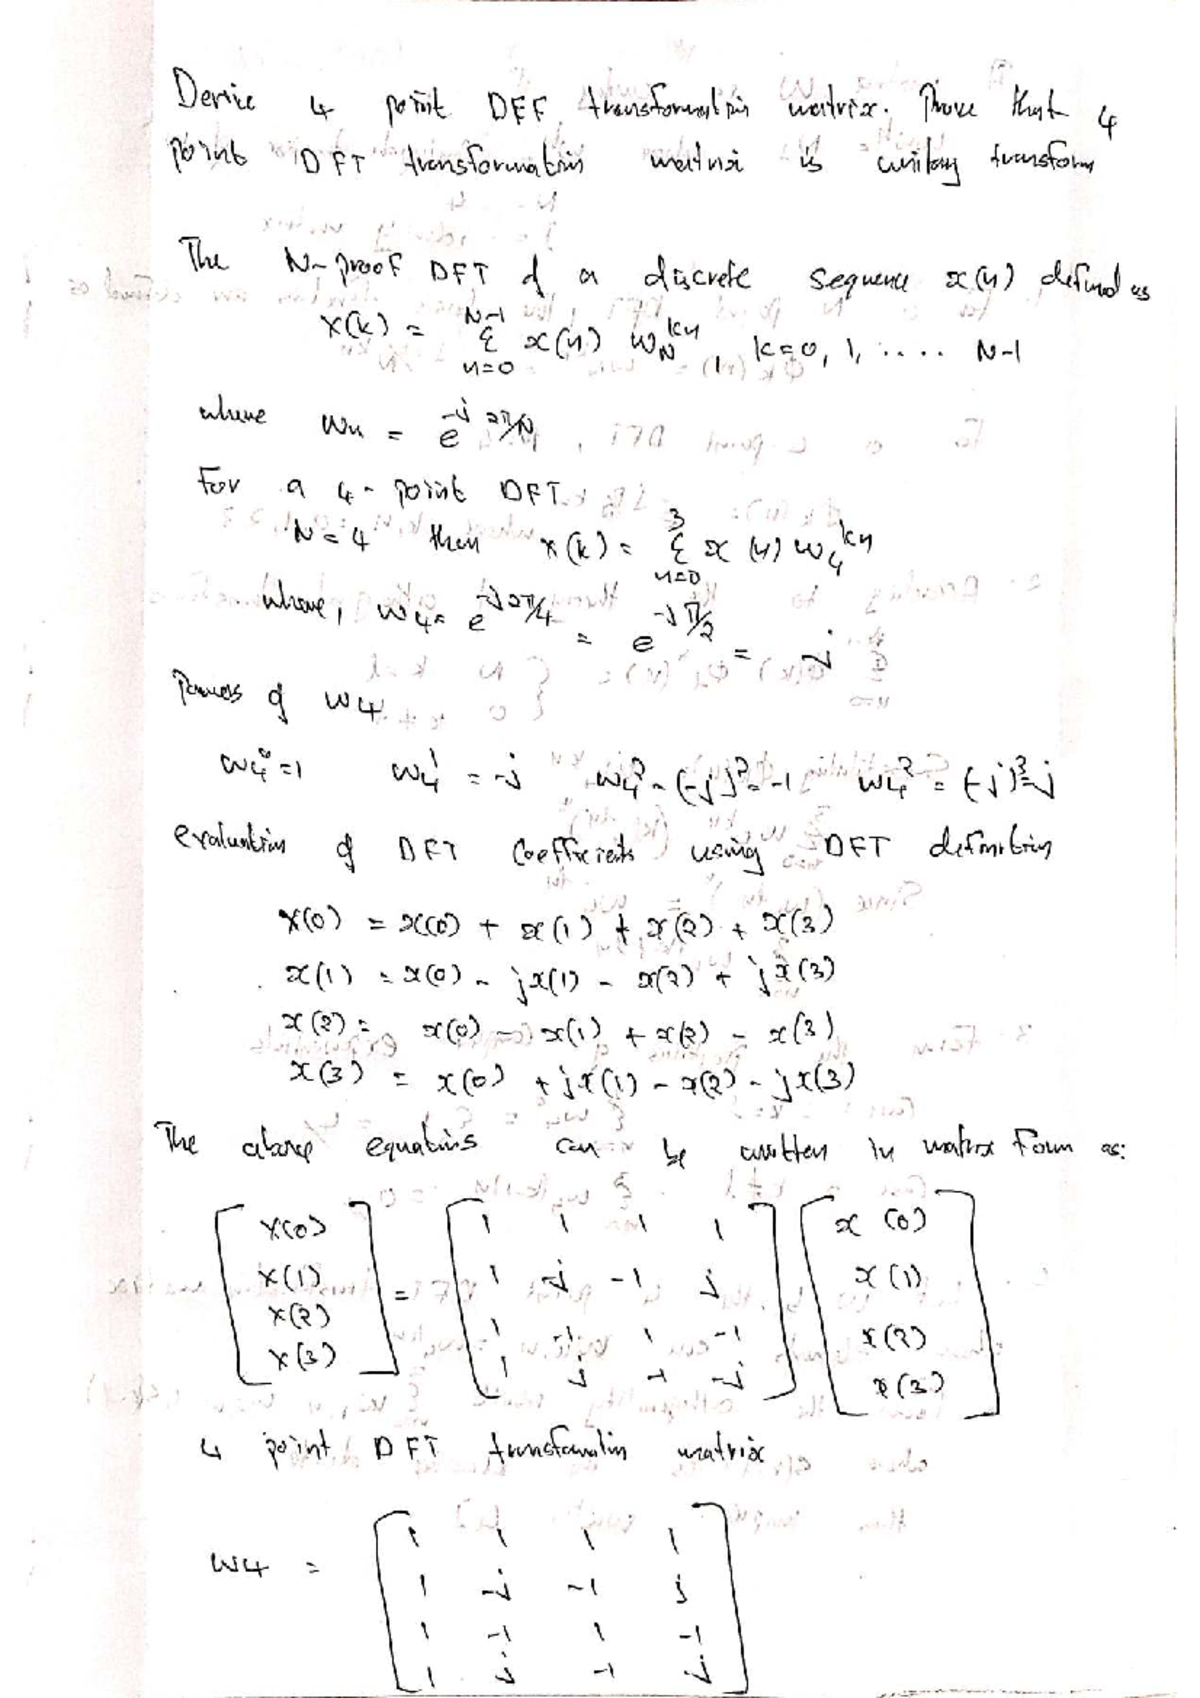 Derive 4 point DFF transformation matrix. Prove that 4
point DFT transformation matrix is unitary transform
The N-proof DFT of a discrete sequence x(n) defined as
X(k) = N-1 Σ n=0 x(n) W_N^kn, k=0, 1, .... N-1
where Wn = e^-j 2π/N
For a 4-point DFT
N=4 then x(k) = 3 Σ n=0 x(n) W4^kn
where, W4 = e^-j2π/4 = e^-jπ/2 = -j
Powers of W4
W4^0=1 W4^1 = -j W4^2 = (-j)^2 = -1 W4^3 = (-j)^3=j
evaluation of DFT Coefficients using DFT definition
X(0) = x(0) + x(1) + x(2) + x(3)
x(1) = x(0) - jx(1) - x(2) + jx(3)
x(2) = x(0) - x(1) + x(2) - x(3)
x(3) = x(0) + jx(1) - x(2) - jx(3)
The above equations can be written in matrix Form as:
[X(0)] = [1 1 1 1] [x(0)]
[X(1)] [1 -j -1 j] [x(1)]
[X(2)] [1 -1 1 -1] [x(2)]
[X(3)] [1 j -1 -j] [x(3)]
4 point DFT transformation matrix
W4 = [1 1 1 1]
[1 -j -1 j]
[1 -1 1 -1]
[1 j -1 -j]